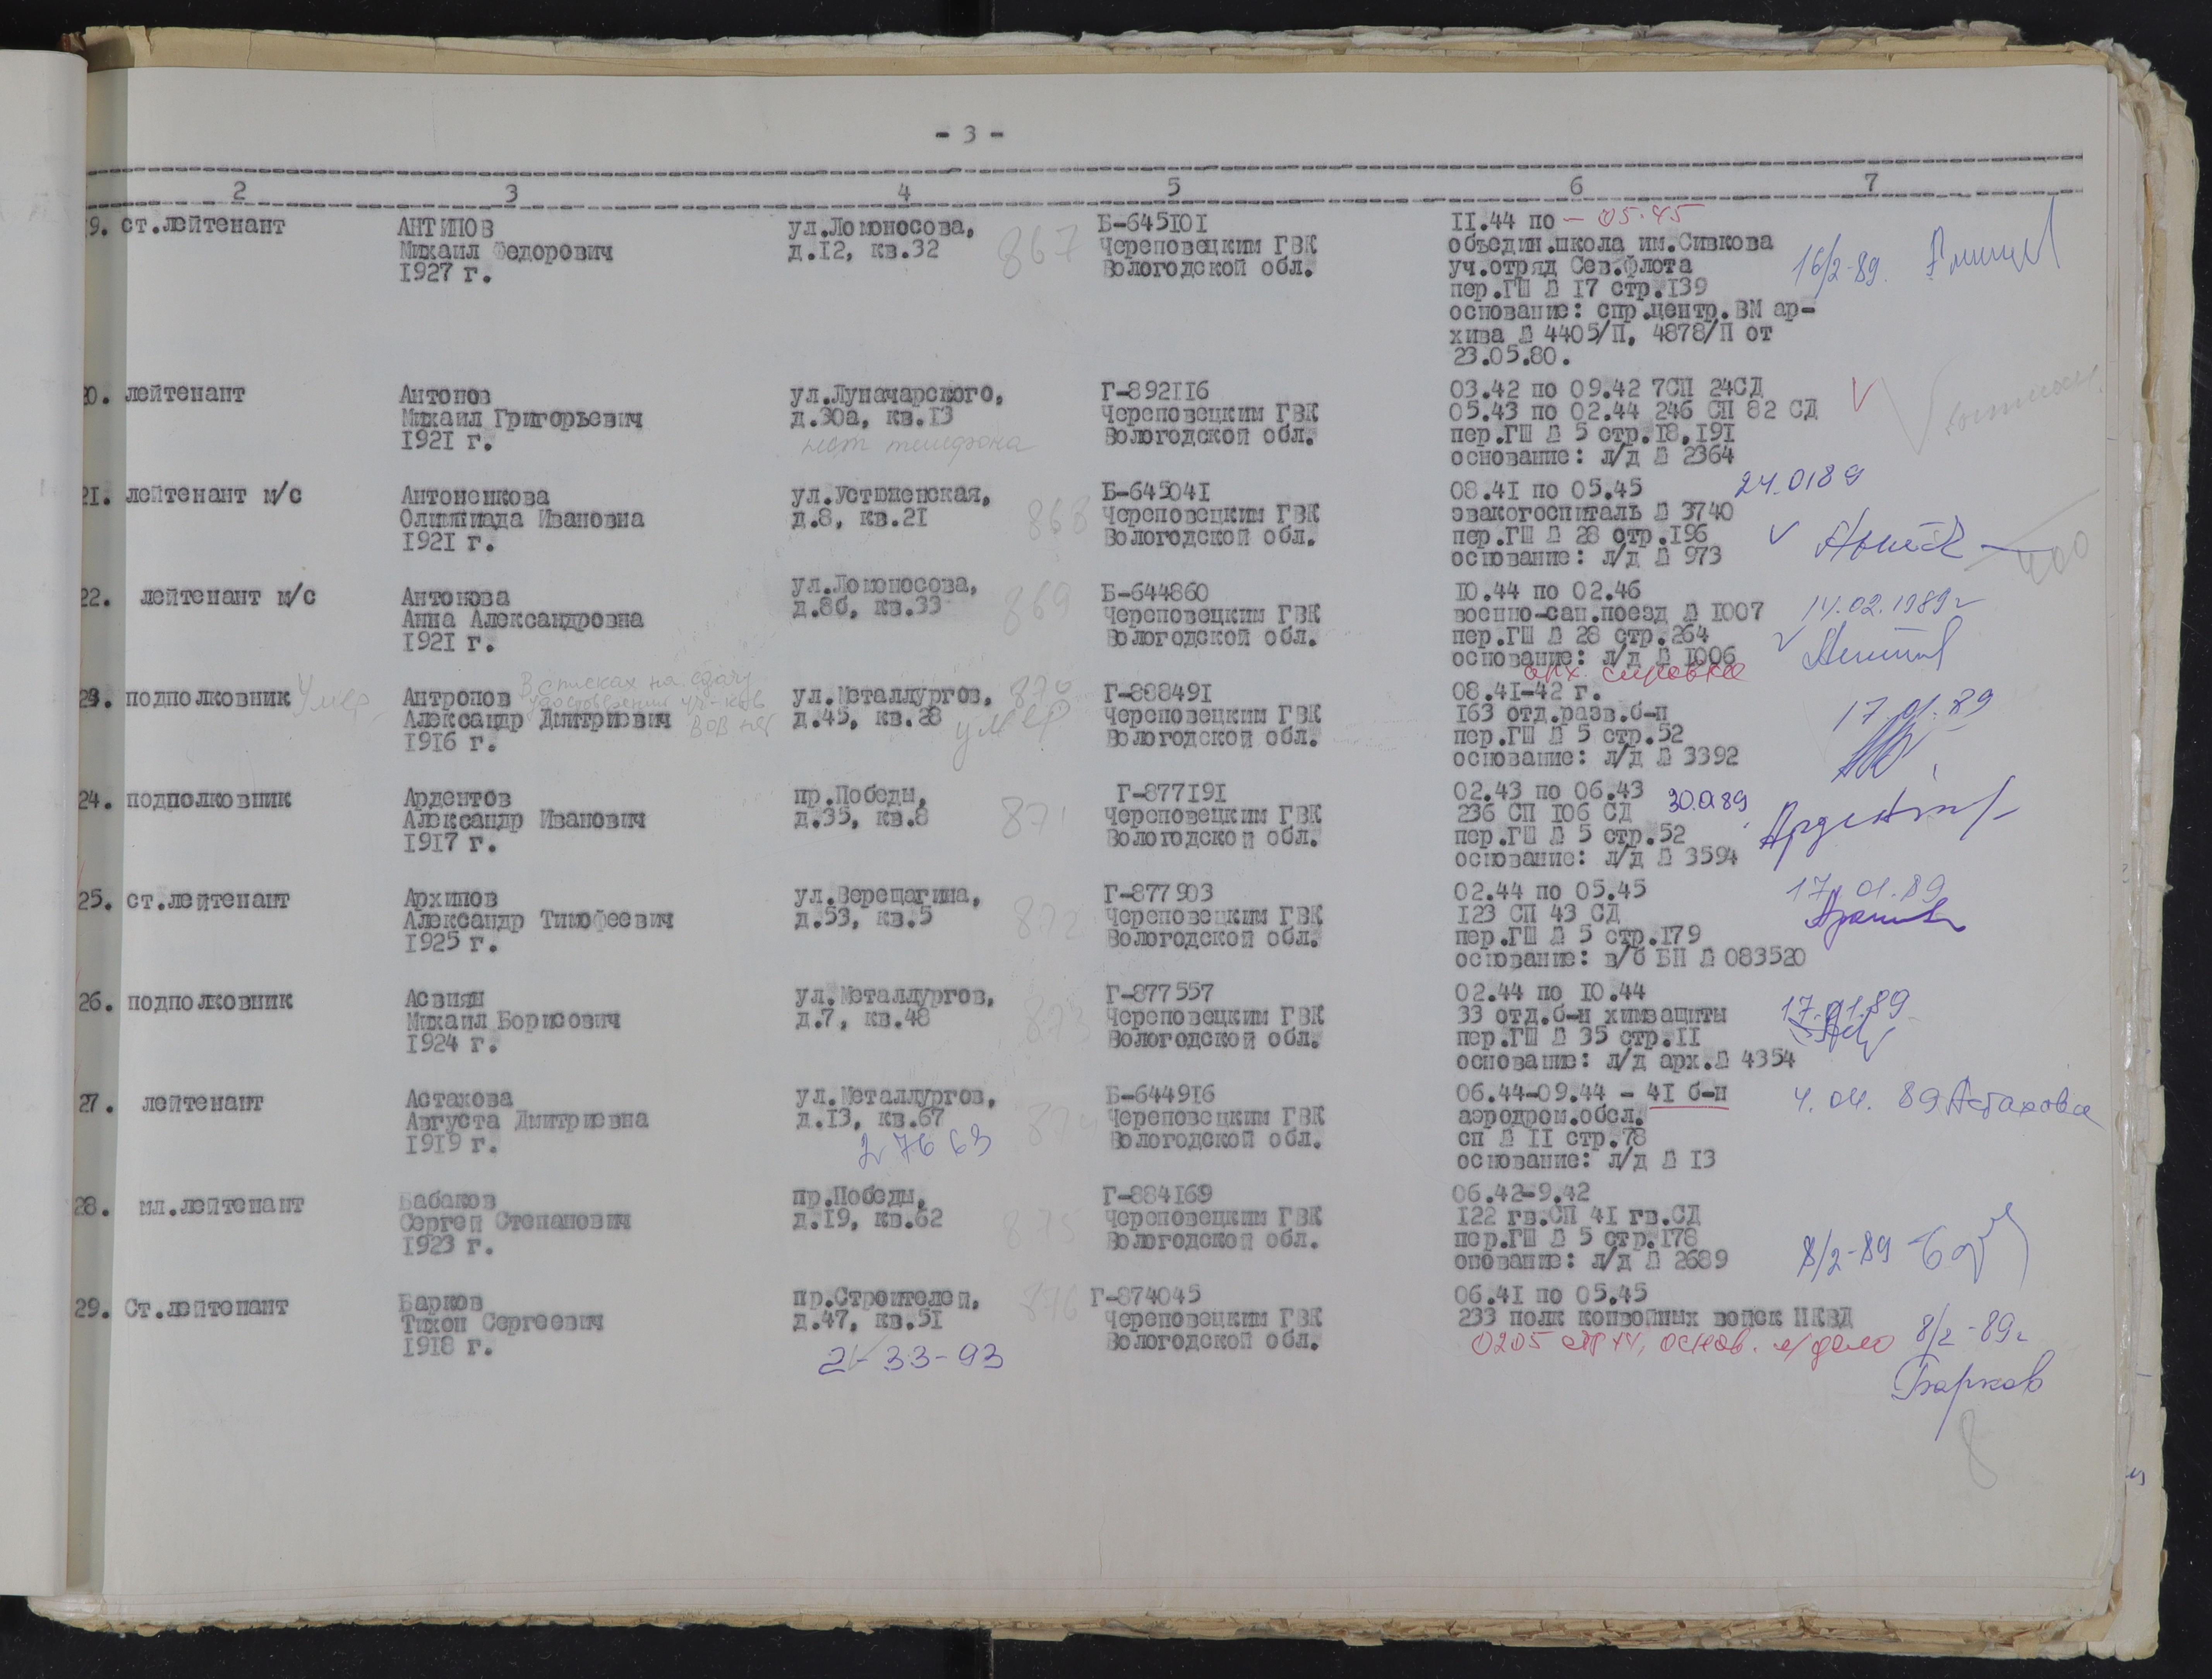 - 3 -
2 3 4 5 6 7
9. ст.лейтенант
АНТИПОВ
Михаил Федорович
1927 г.
ул.Ломоносова,
д.12, кв.32
867
Б-645101
Череповецким ГВК
Вологодской обл.
11.44 по - 05.45
объедин.школа им.Сивкова
уч.отряд Сев.Флота
пер.ГШ № 17 стр.139
основание: спр.центр.ВМ ар-
хива № 4405/П, 4878/П от
23.05.80.
16/2-89.
20. лейтенант
Антонов
Михаил Григорьевич
1921 г.
ул.Луначарского,
д.30а, кв.13
нет телефона
Г-892116
Череповецким ГВК
Вологодской обл.
03.42 по 09.42 7СП 24СД
05.43 по 02.44 246 СП 82 СД
пер.ГШ № 5 стр.18,191
основание: л/д № 2364
21. лейтенант м/с
Антоненкова
Олимпиада Ивановна
1921 г.
ул.Устюженская,
д.8, кв.21
868
Б-645041
Череповецким ГВК
Вологодской обл.
08.41 по 05.45
эвакогоспиталь № 3740
пер.ГШ № 28 стр.196
основание: л/д № 973
24.0189
22. лейтенант м/с
Антонова
Анна Александровна
1921 г.
ул.Ломоносова,
д.8б, кв.33
869
Б-644860
Череповецким ГВК
Вологодской обл.
10.44 по 02.46
военно-сан.поезд № 1007
пер.ГШ № 28 стр.264
основание: л/д № 1006
арх. справка
14.02.1989г
23. подполковник Умер
Антропов
Александр Дмитриевич
1916 г.
В списках на сдачу
удостоверений уч-ков
ВОВ нет
ул.Металлургов,
д.45, кв.28
870
умер
Г-808491
Череповецким ГВК
Вологодской обл.
08.41-42 г.
163 отд.разв.б-н
пер.ГШ № 5 стр.52
основание: л/д № 3392
17.01.89
24. подполковник
Ардентов
Александр Иванович
1917 г.
пр.Победы,
д.35, кв.8
871
Г-877191
Череповецким ГВК
Вологодской обл.
02.43 по 06.43
236 СП 106 СД
пер.ГШ № 5 стр.52
основание: л/д № 3594
30.0189
25. ст.лейтенант
Архипов
Александр Тимофеевич
1925 г.
ул.Верещагина,
д.53, кв.5
872
Г-877903
Череповецким ГВК
Вологодской обл.
02.44 по 05.45
123 СП 43 СД
пер.ГШ № 5 стр.179
основание: в/б БН № 083520
17.01.89
26. подполковник
Асвиян
Михаил Борисович
1924 г.
ул.Металлургов,
д.7, кв.48
873
Г-877557
Череповецким ГВК
Вологодской обл.
02.44 по 10.44
33 отд.б-н химзащиты
пер.ГШ № 35 стр.11
основание: л/д арх.№ 4354
17.01.89
27. лейтенант
Астахова
Августа Дмитриевна
1919 г.
ул.Металлургов,
д.13, кв.67
2 76 63
874
Б-644916
Череповецким ГВК
Вологодской обл.
06.44-09.44 - 41 б-н
аэродром.обсл.
сп № 11 стр.78
основание: л/д № 13
4.04. 89 Астахова
28. мл.лейтенант
Бабаков
Сергей Степанович
1923 г.
пр.Победы,
д.19, кв.62
875
Г-884169
Череповецким ГВК
Вологодской обл.
06.42-9.42
122 гв.СП 41 гв.СД
пер.ГШ № 5 стр.178
опование: л/д № 2689
8/2-89
29. Ст.лейтенант
Барков
Тихон Сергеевич
1918 г.
пр.Строителей,
д.47, кв.51
2-33-93
876
Г-874045
Череповецким ГВК
Вологодской обл.
06.41 по 05.45
233 полк конвойных войск НКВД
0205 стр 14, основ. л/дело
8/2-89г
Барков
8